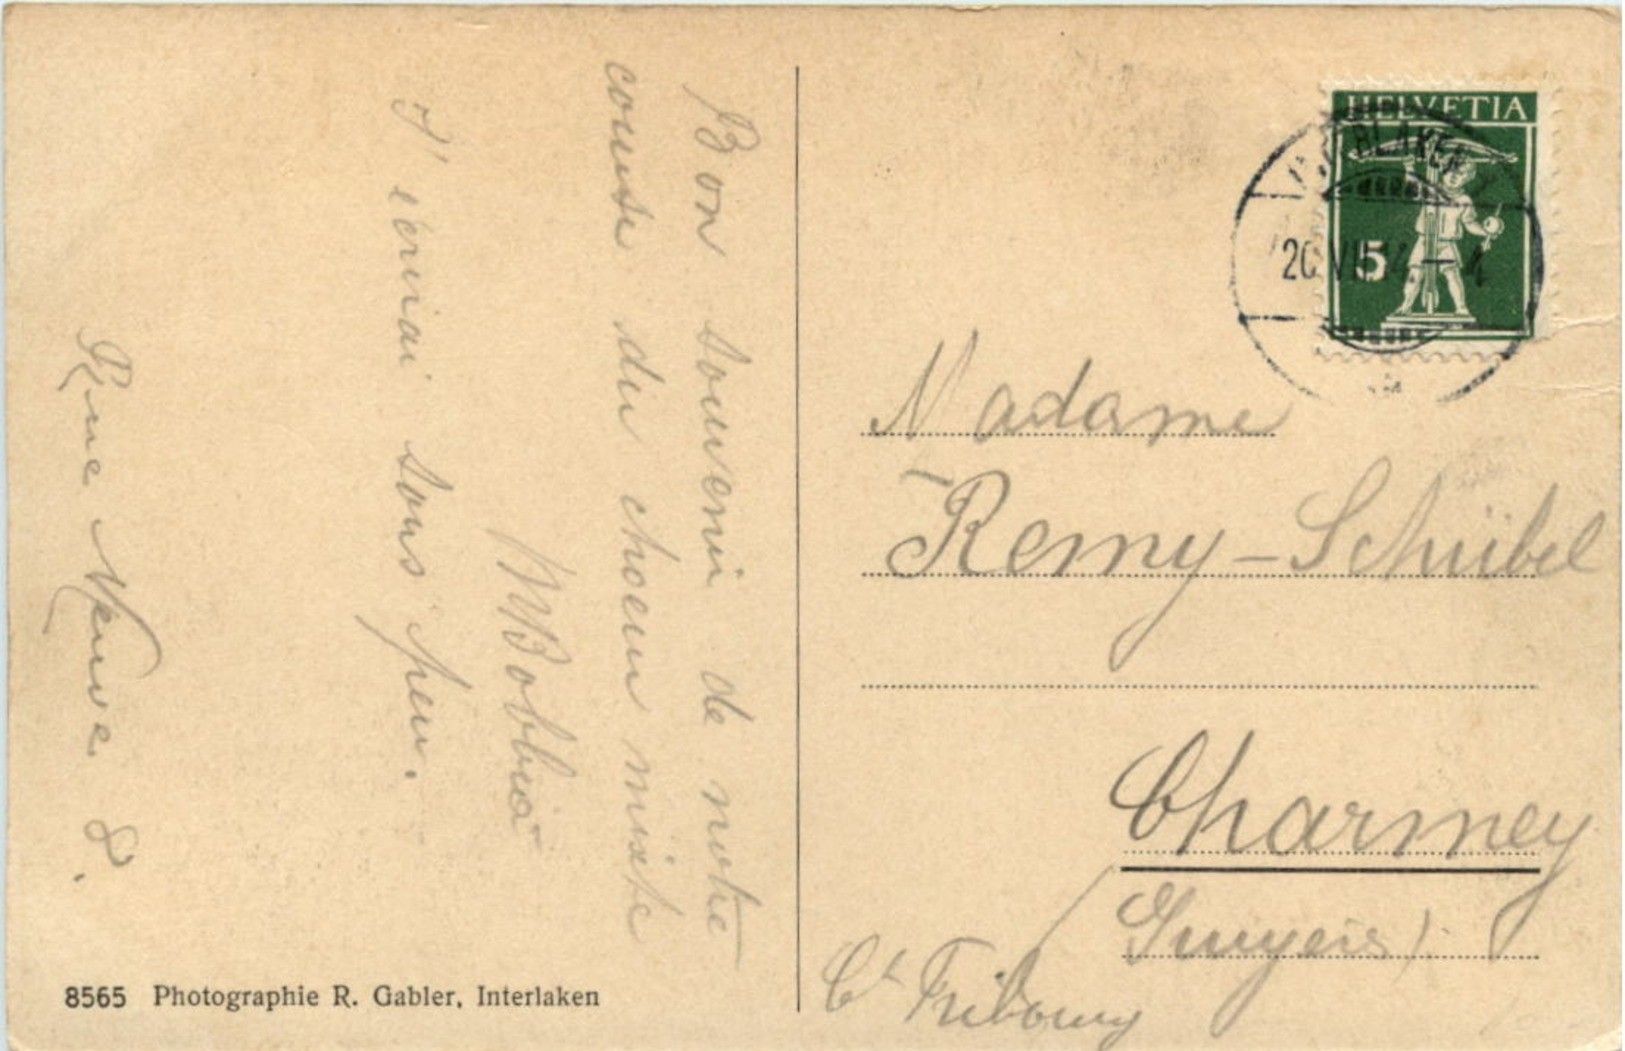 Bon souvenir de notre
course du choeur mixte
MBobbia
J'écrirai sous peu.
Rue Neuve 8.
8565 Photographie R. Gabler, Interlaken
HELVETIA
5
Madame
Remy-Schübel
Charmey
Gruyère)
Ct Fribourg